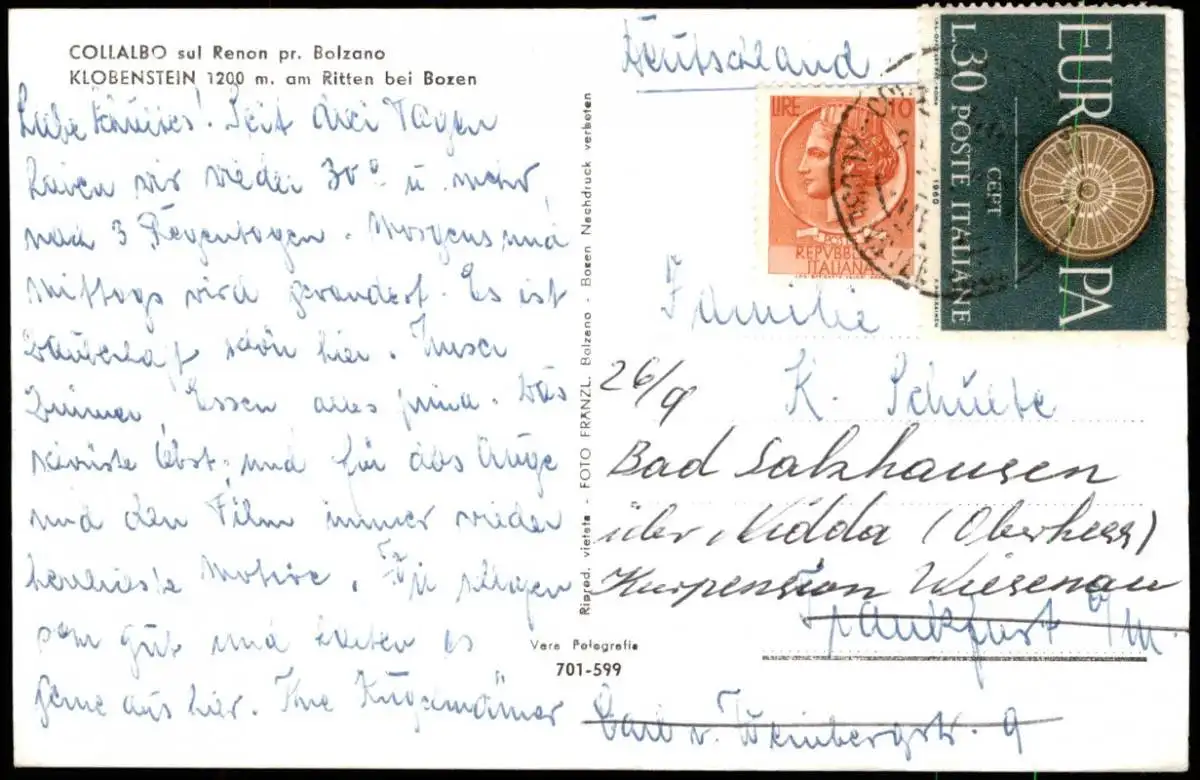 COLLALBO sul Renon pr. Bolzano
KLOBENSTEIN 1200 m. am Ritten bei Bozen
Seit drei Tagen
haben wir wieder 30° u. mehr
nach 3 Regentagen. Morgens und
mittags wird gewandert. Es ist
zauberhaft schön hier. Unser
Zimmer Essen alles prima. Das
schönste Obst und für das Auge
und den Film immer wieder
herrlichste Motive. Wir
sehr gut und halten es
gerne aus hier. Ihre
Ripred. vietata - FOTO FRÄNZL. Bolzano - Bozen Nachdruck verboten
Vera Fotografia
701-599
Deutschland
LIRE 10
POSTE
REPVBBLICA
ITALIANA
EUROPA
L.30 POSTE ITALIANE
CEPT
1960
Familie
K. Schulte
26/9
Bad Salzhausen
über Nidda (Oberhess)
Kurpension Wiesenau
Frankfurt a/m.
Carl v. Weinbergstr. 9